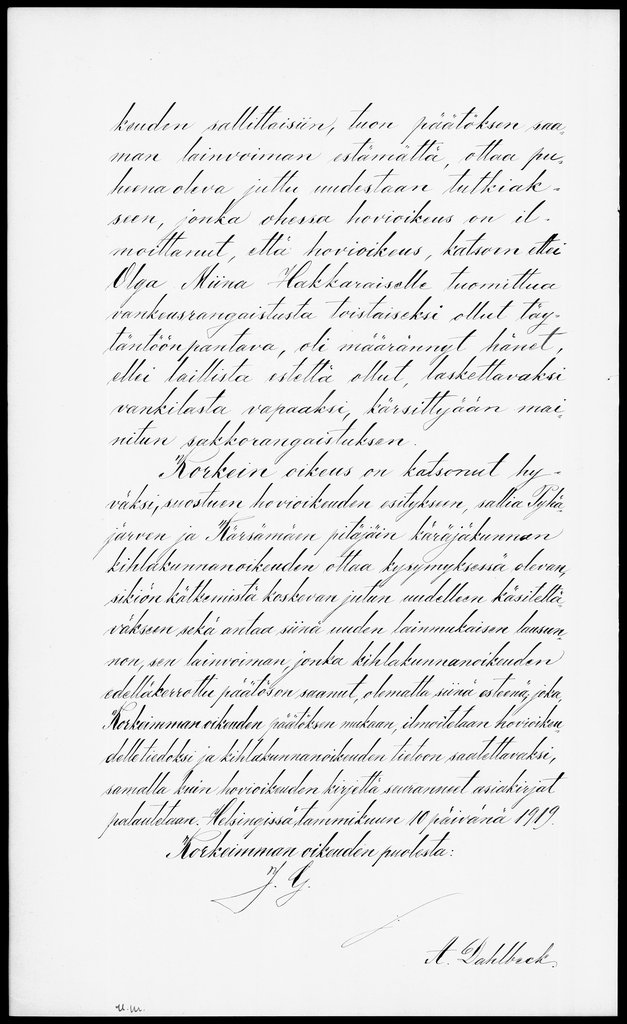 keuden sallittaisiin, tuon päätöksen saa-
man lainvoiman estämättä, ottaa pu-
heenaoleva juttu uudestaan tutkiak-
seen, jonka ohessa hovioikeus on il-
moittanut, että hovioikeus, katsoen ettei
Olga Miina Hakkaraiselle tuomittua
vankeusrangaistusta toistaiseksi ollut täy-
täntöönpantava, oli määrännyt hänet,
ellei laillista estettä ollut, laskettavaksi
vankilasta vapaaksi, kärsittyjään mai-
nitun sakkorangaistuksen.
Korkein oikeus on katsonut hy-
väksi, suostuen hovioikeuden esitykseen, sallia Pyhä-
järven ja Kärsämäen pitäjäin käräjäkunnan
kihlakunnanoikeuden ottaa kysymyksessä olevan,
sikiön kätkemistä koskevan jutun uudelleen käsiteltä-
väkseen sekä antaa siinä uuden lainmukaisen lausun-
non, sen lainvoiman, jonka kihlakunnanoikeuden
edelläkerrottu päätös on saanut, olematta siinä esteenä; joka,
Korkeimman oikeuden päätöksen mukaan, ilmoitetaan hovioikeu-
delle tiedoksi ja kihlakunnanoikeuden tietoon saatettavaksi,
samalla kuin hovioikeuden kirjettä seuranneet asiakirjat
palautetaan. Helsingissä, tammikuun 10 päivänä 1919.
Korkeimman oikeuden puolesta:
J. G.
A. Dahlbeck.